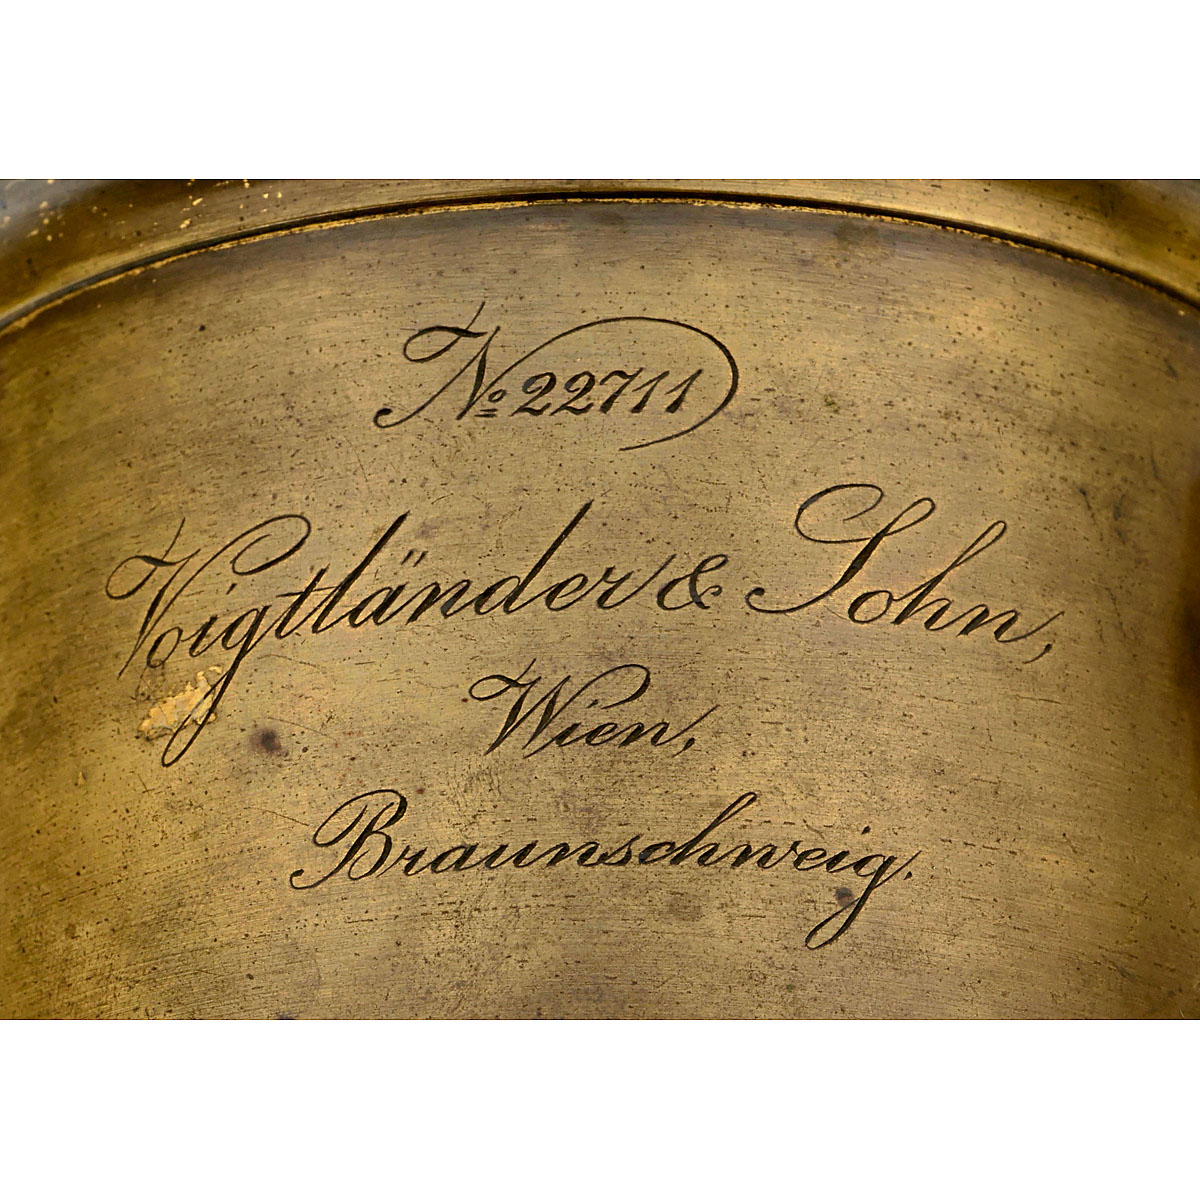 № 22711
Voigtländer & Sohn,
Wien,
Braunschweig.